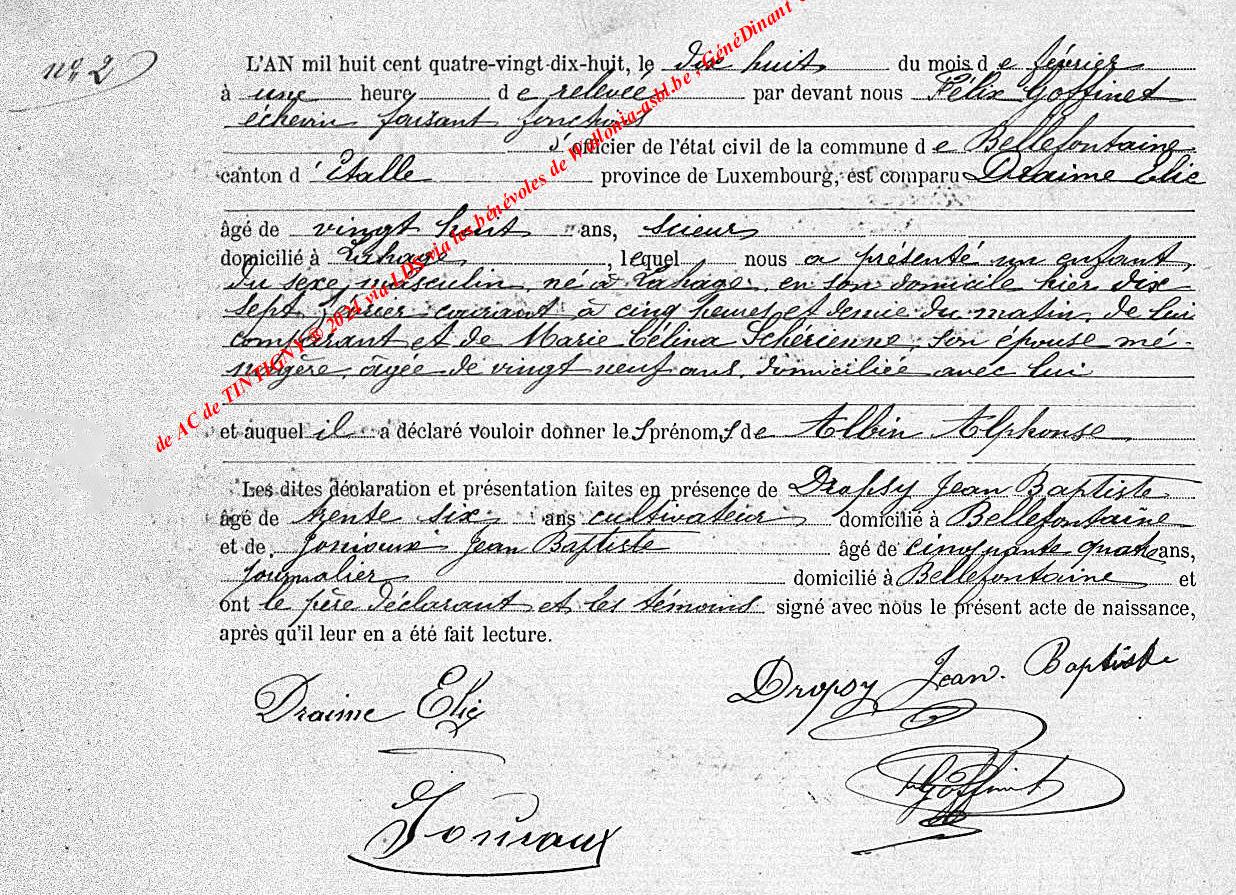 nº 2
L'AN mil huit cent quatre-vingt-dix-huit, le dix huit du mois de février
à une heure de relevée par devant nous Félix Goffinet
échevin faisant fonctions
d'officier de l'état civil de la commune de Bellefontaine
canton d'Etalle province de Luxembourg, est comparu Draime Elie
âgé de vingt huit ans, scieur
domicilié à Lahage, lequel nous a présenté un enfant
du sexe masculin, né à Lahage, en son domicile hier dix
sept février courant à cinq heures et demie du matin, de lui
comparant et de Marie Célina Schérienne, son épouse mé-
nagère, âgée de vingt neuf ans, domiciliée avec lui
et auquel il a déclaré vouloir donner les prénoms de Albin Alphonse
Les dites déclaration et présentation faites en présence de Dropsy Jean Baptiste
âgé de trente six ans cultivateur domicilié à Bellefontaine
et de Jean Baptiste âgé de cinquante quatre ans,
journalier domicilié à Bellefontaine et
ont le père déclarant et les témoins signé avec nous le présent acte de naissance,
après qu'il leur en a été fait lecture.
Draime Elie
Dropsy Jean Baptiste
Goffinet
de AC de TINTIGNY ® 2021 via LDS via les bénévoles de Wallonia-asbl.be, GénéDinant